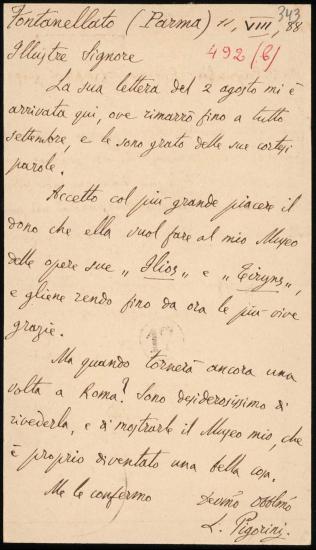 343
Fontanellato (Parma) 11, VIII, 88
492 (6)
Illustre Signore
La sua lettera del 2 agosto mi è
arrivata qui, ove rimarrò fino a tutto
settembre, e le sono grato delle sue cortesi
parole.
Accetto col più grande piacere il
dono che ella vuol fare al mio Museo
delle opere sue „Ilios„ e „Tiryns„,
e gliene rendo fino da ora le più vive
grazie.
Ma quando tornerà ancora una
volta a Roma? Sono desiderosissimo di
rivederla, e di mostrarle il Museo mio, che
è proprio diventato una bella cosa.
Me le confermo
Devmo Obblmo
L. Pigorini